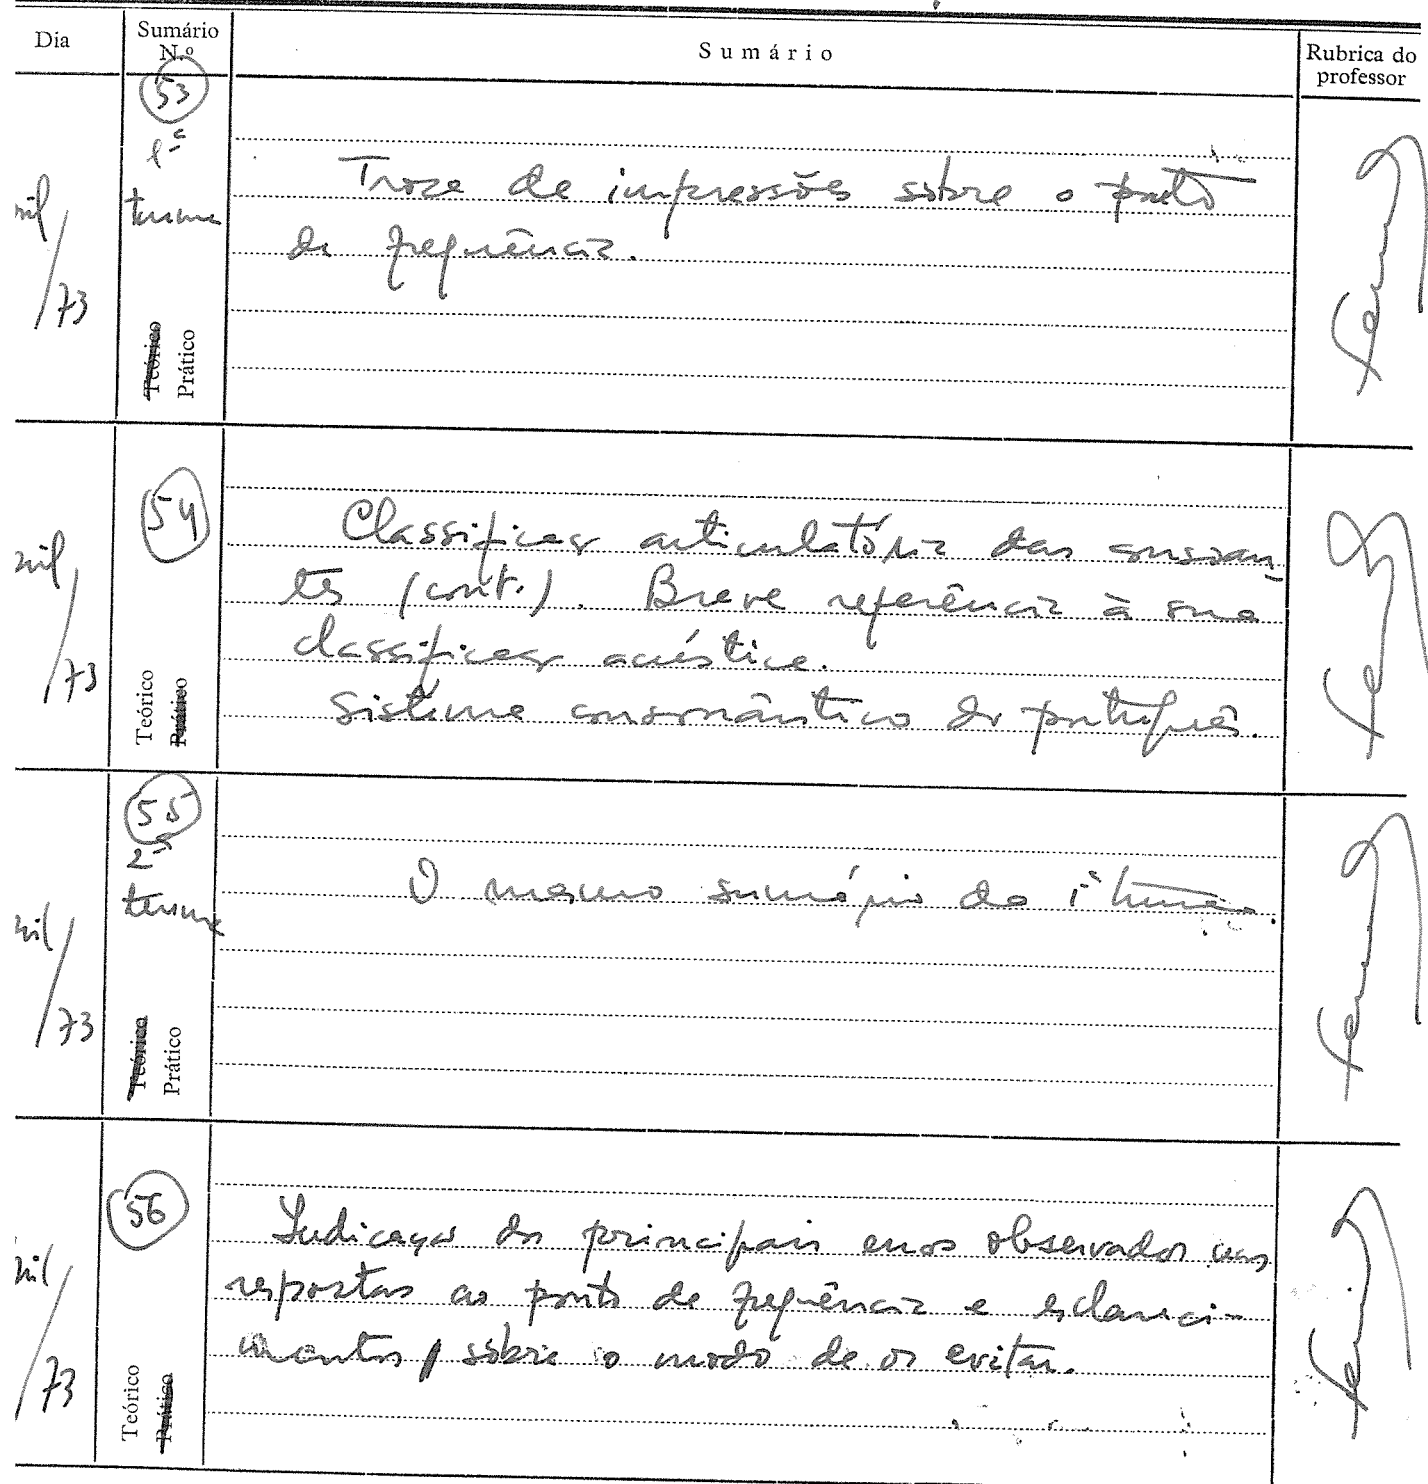 Dia
Sumário
N.º
Sumário
Rubrica do
professor
53
1ª
turma
/73
Troca de impressões sôbre o ponto
de frequência.
Teórico
Prático
54
/73
Classificação articulatória das consoan-
tes (cont.). Breve referência à sua
classificação acústica.
Sistema consonântico do português.
Teórico
Prático
55
2ª
turma
/73
O mesmo sumário da 1ª turma.
Teórico
Prático
56
/73
Indicação dos principais erros observados nas
respostas ao ponto de frequência e esclareci-
mentos sôbre o modo de os evitar.
Teórico
Prático